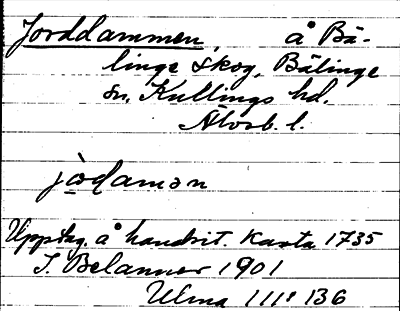 Jorddammen, å Bä-
linge skog, Bälinge
sn, Kullings hd.
Älvsb. l.
jo̱damən
Upptag. å handrit. karta 1735
J. Belanner 1901
Ulma 111:136